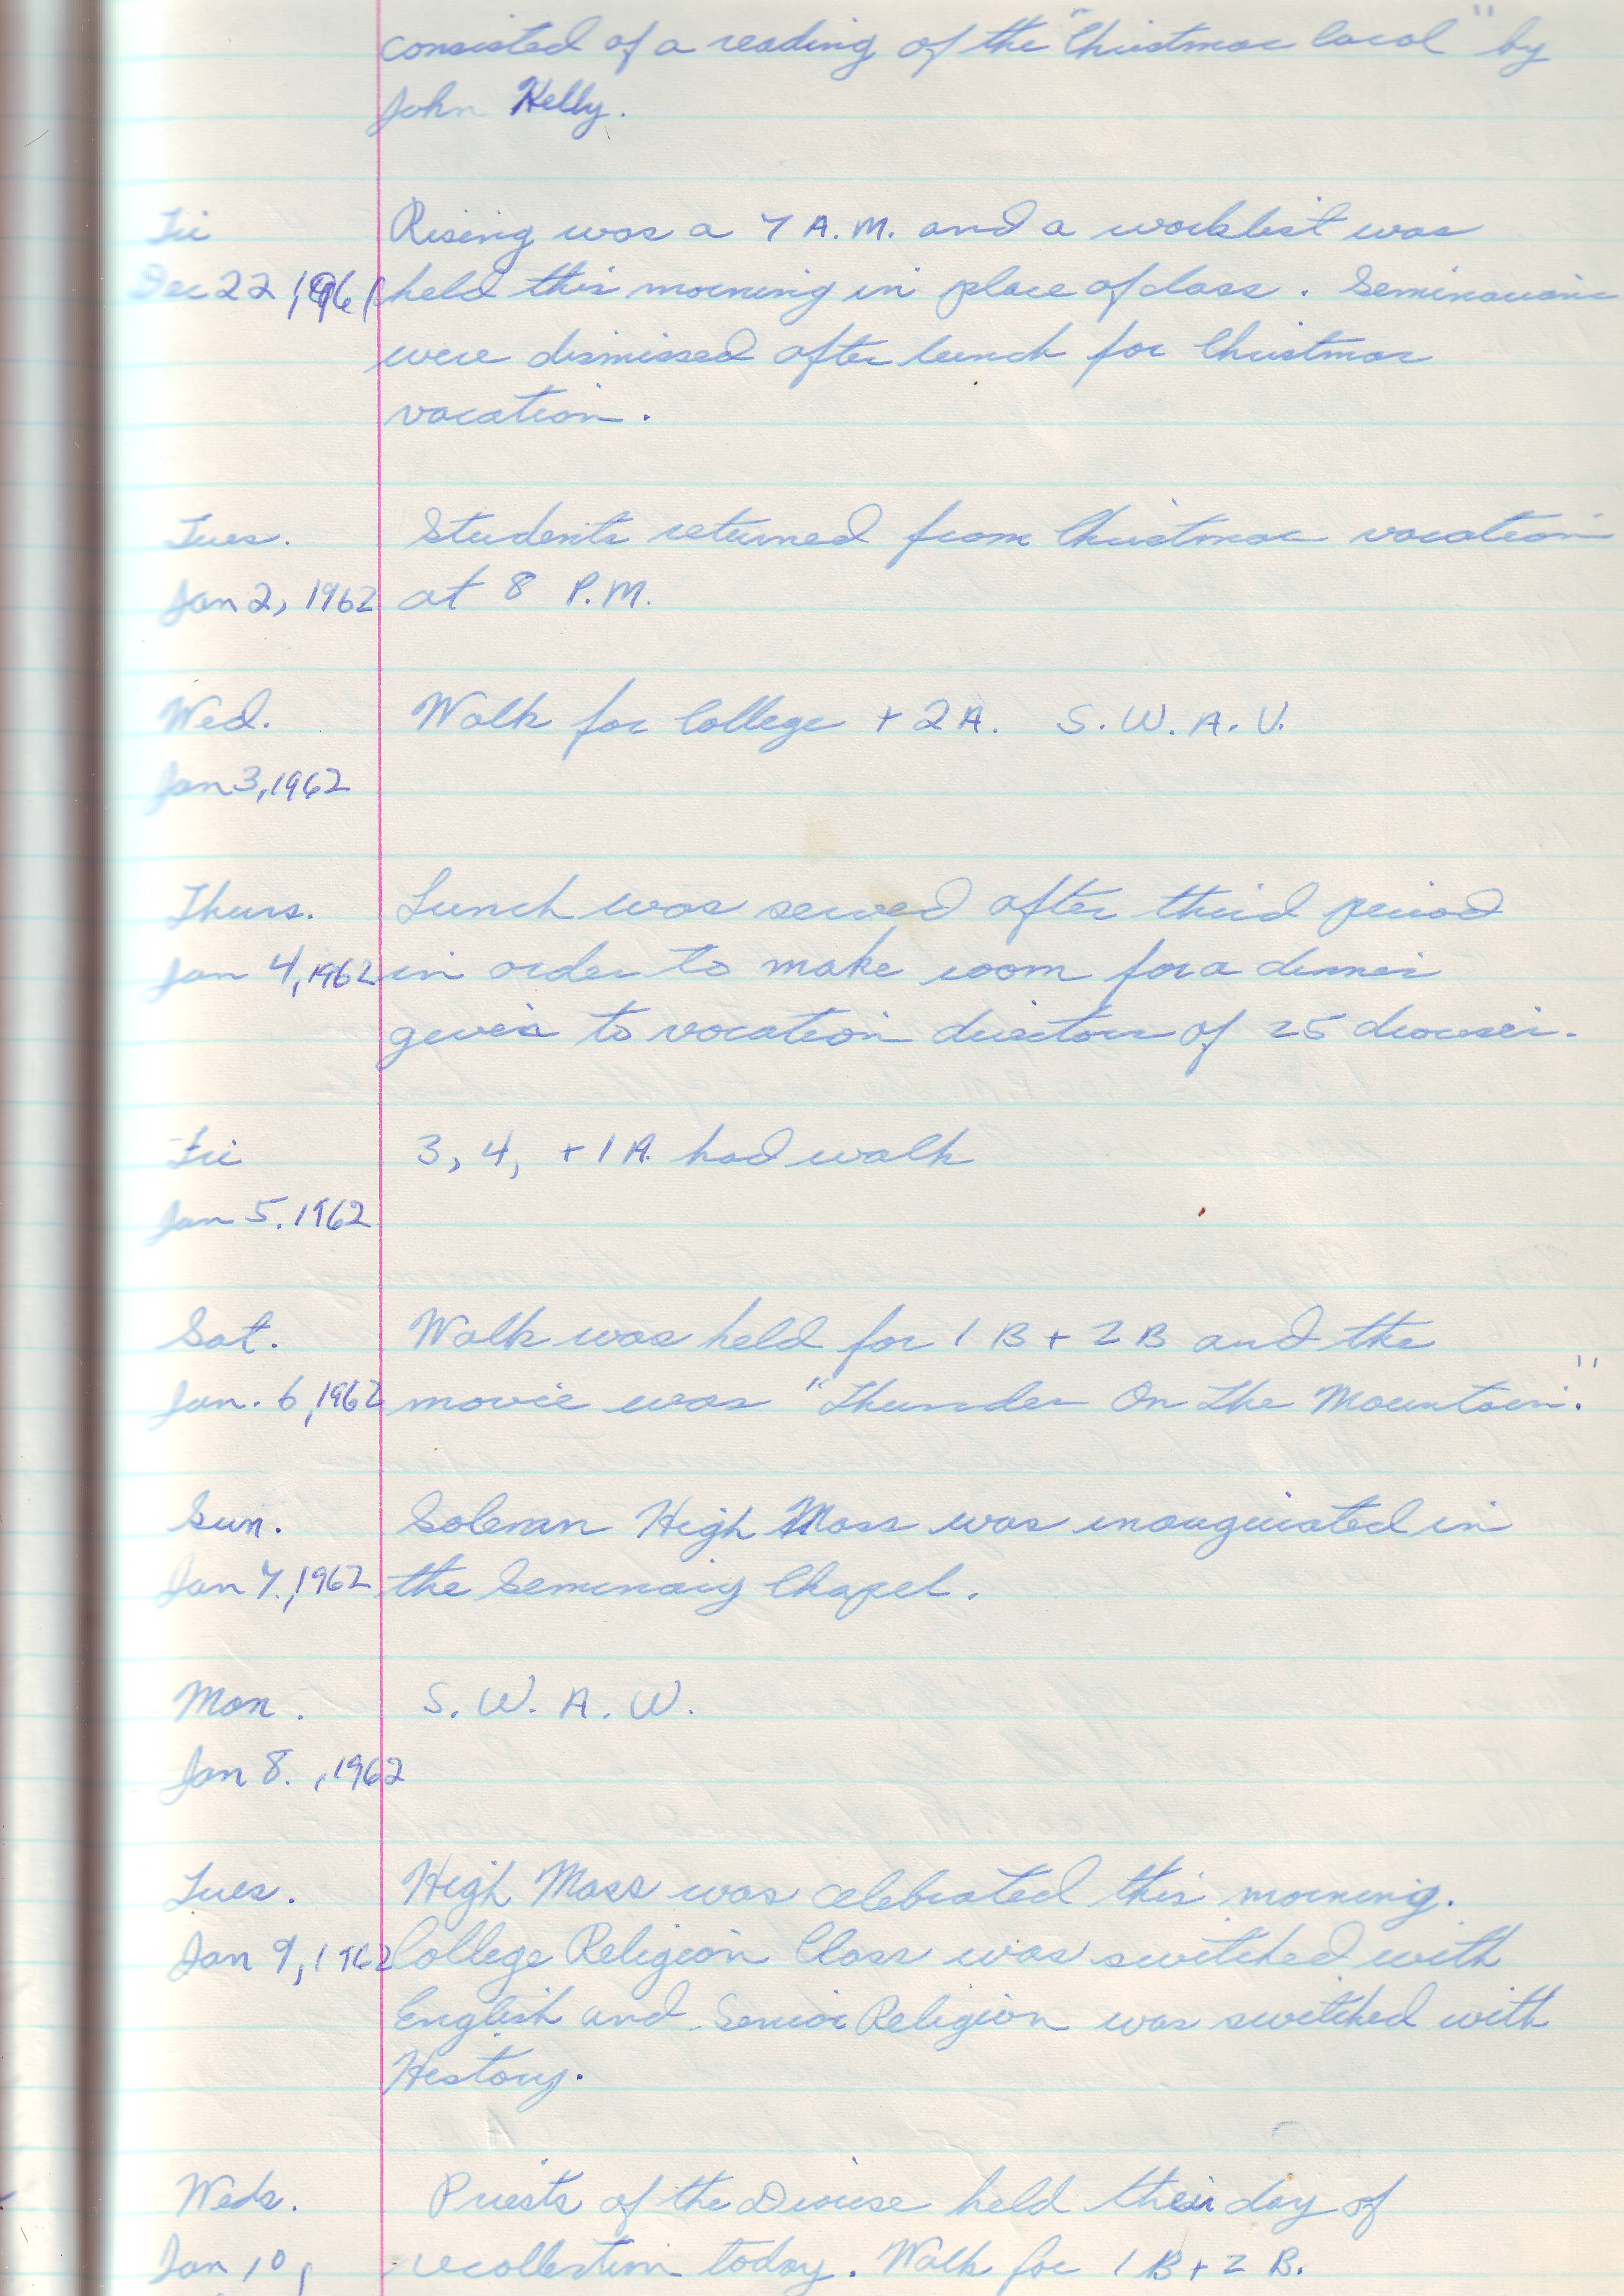 consisted of a reading of the "Christmas Carol" by
John Kelly.
Fri Rising was a 7 A.M. and a worklist was
Dec 22, 1961 held this morning in place of class. Seminarians
were dismissed after lunch for Christmas
vacation.
Tues. Students returned from Christmas vacation
Jan 2, 1962 at 8 P.M.
Wed. Walk for College + 2A. S.W.A.V.
Jan 3, 1962
Thurs. Lunch was served after third period
Jan 4, 1962 in order to make room for a dinner
given to vocation directors of 25 dioceses.
Fri 3, 4, + 1A. had walk
Jan 5. 1962
Sat. Walk was held for 1B + 2B and the
Jan. 6, 1962 movie was "Thunder On The Mountain."
Sun. Solemn High Mass was inaugurated in
Jan 7., 1962 the Seminary Chapel.
Mon. S.W.A.W.
Jan 8., 1962
Tues. High Mass was celebrated this morning.
Jan 9, 1962 College Religion Class was switched with
English and Senior Religion was switched with
History.
Weds. Priests of the Diocese held their day of
Jan 10, recollection today. Walk for 1B + 2B.